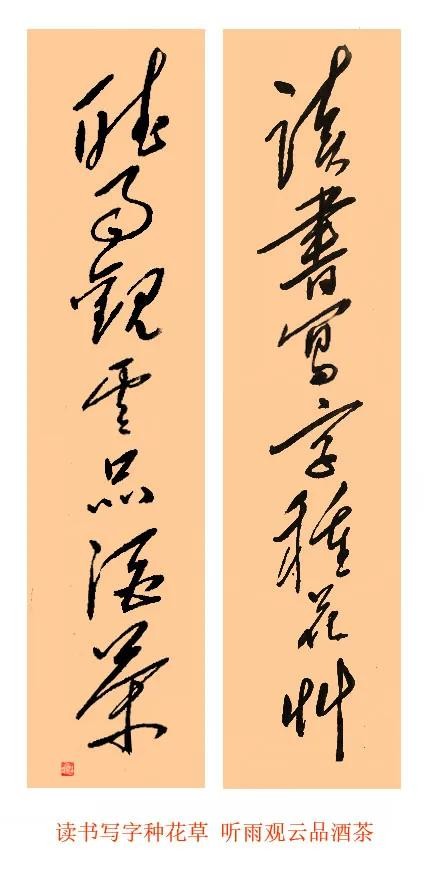 讀書寫字種花艸
聽雨觀雲品酒茶
读书写字种花草 听雨观云品酒茶